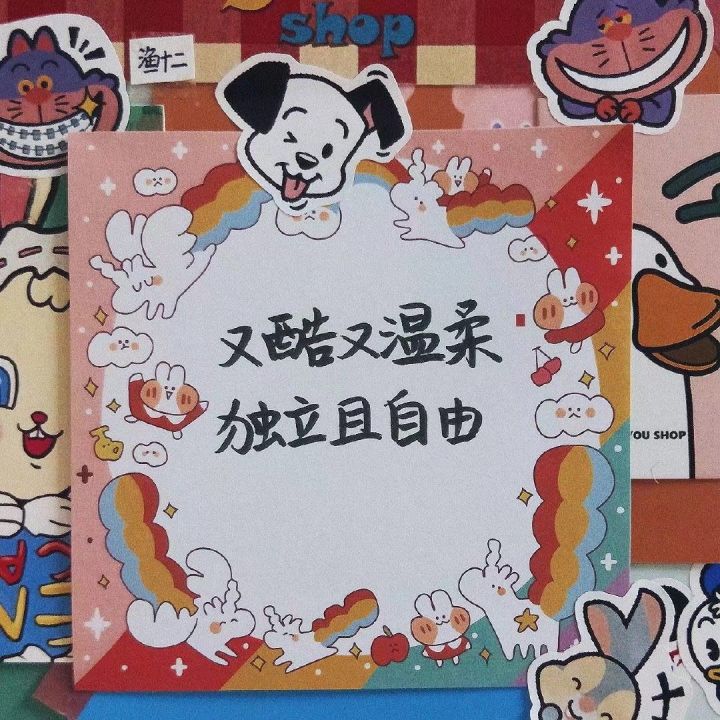 shop
渔十二
又酷又温柔
独立且自由
YOU SHOP